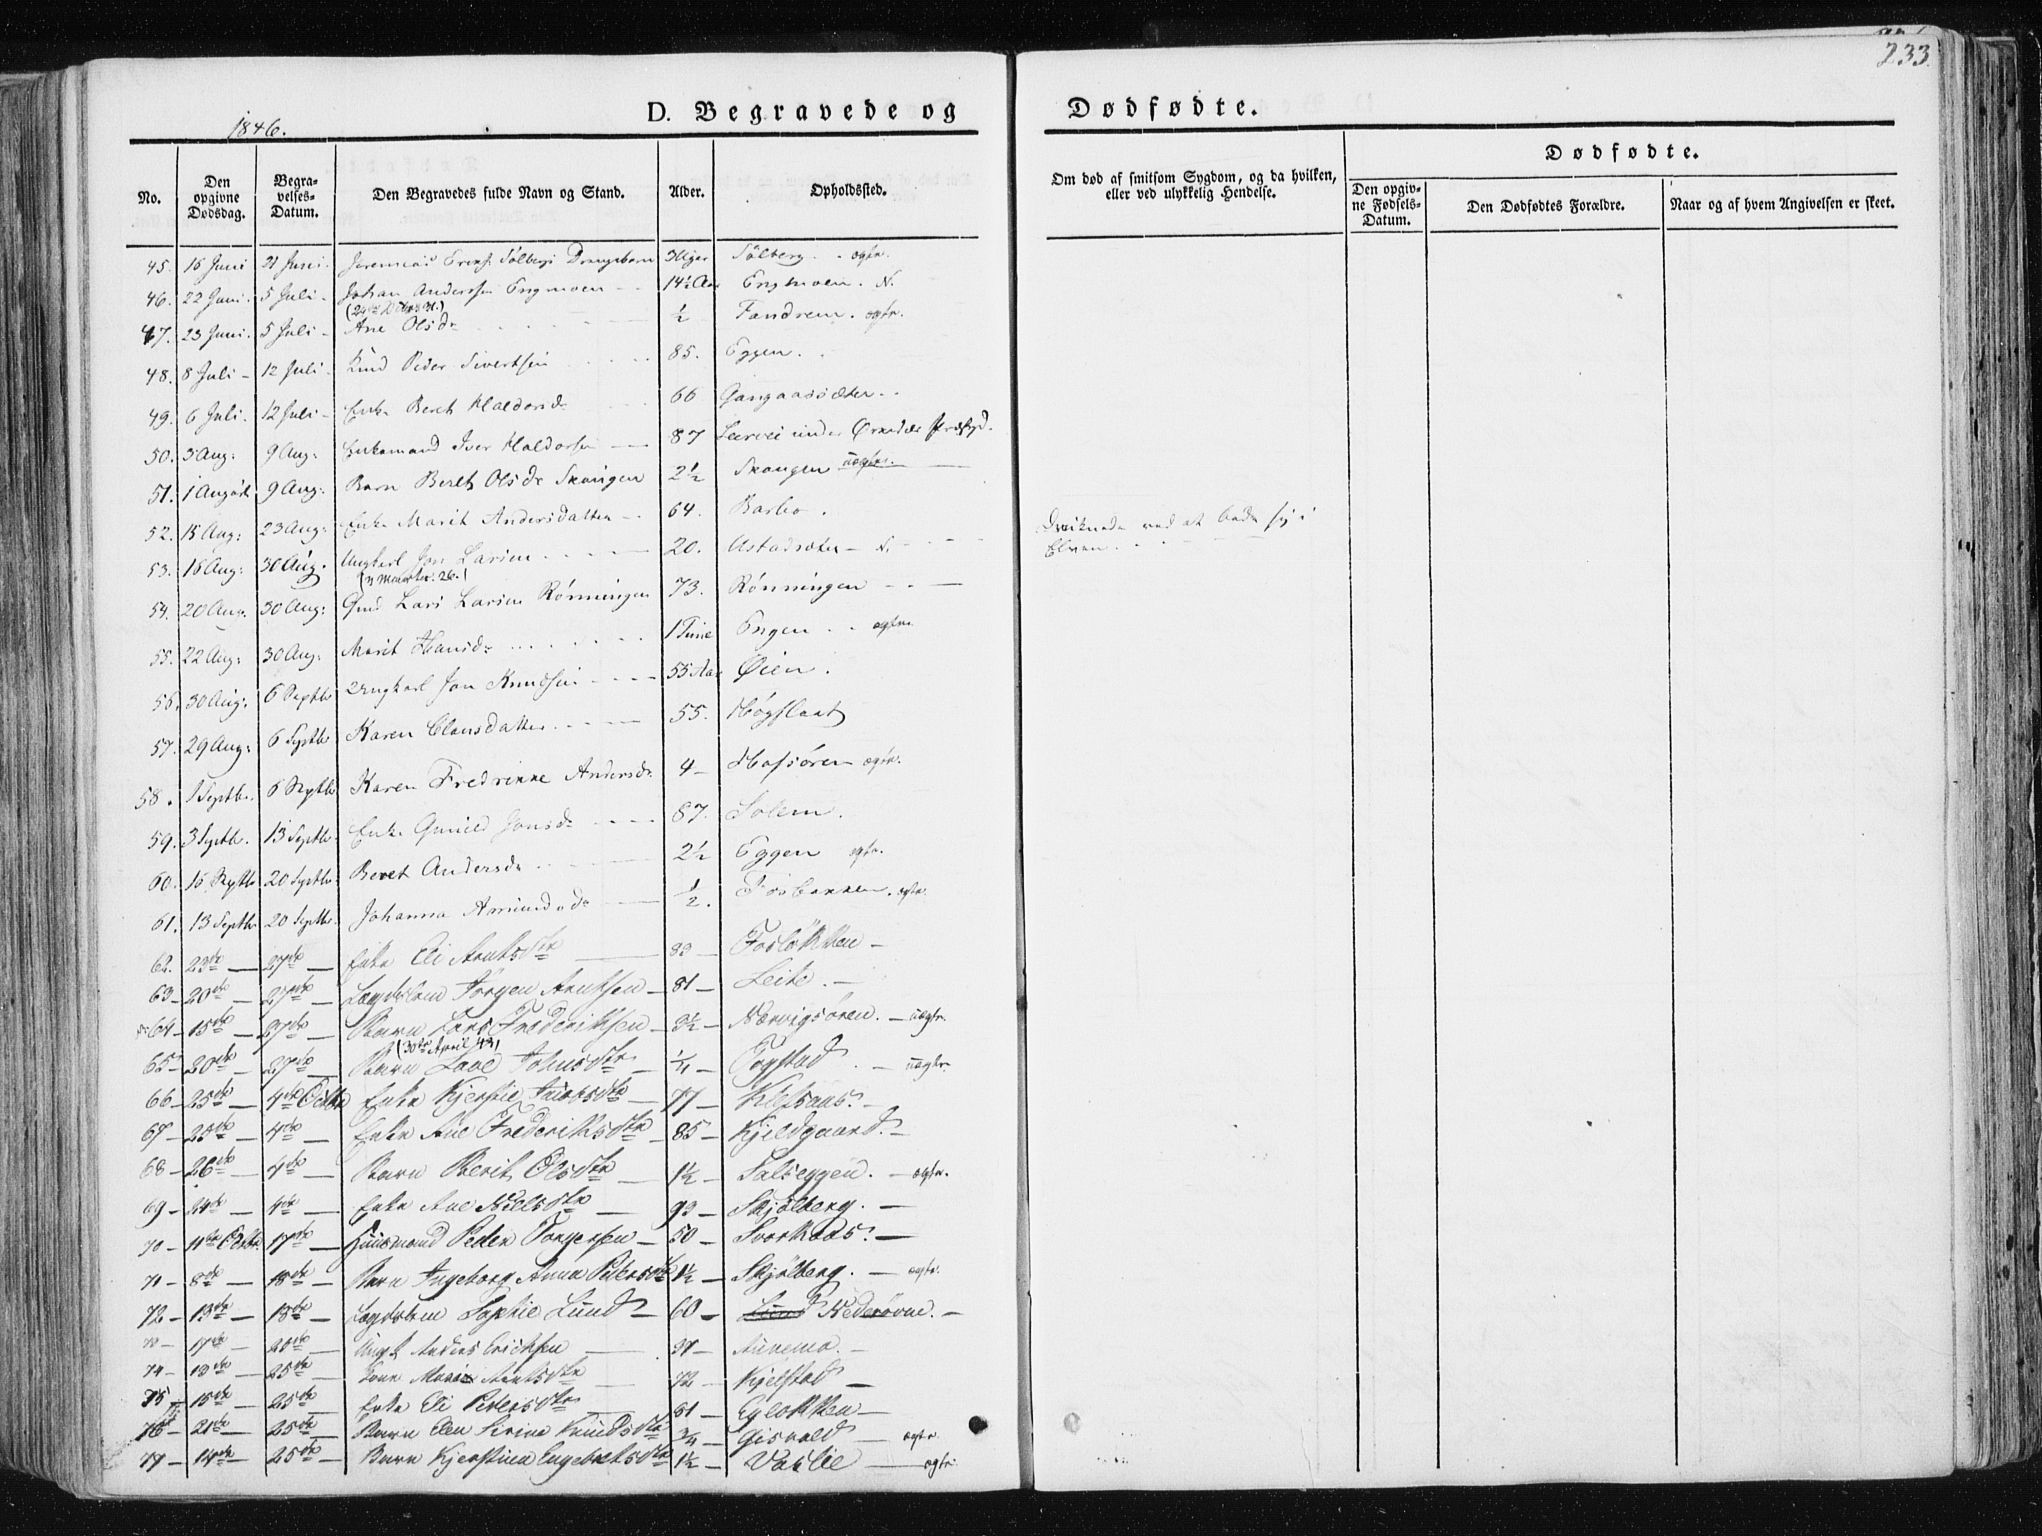 233.
1846.
D. Begravede og Dødfødte.
Dødfødte.
No.
Den opgivne Dødsdag.
Begravelses-Datum.
Den Begravedes fulde Navn og Stand.
Alder.
Opholdssted.
Om død af smitsom Sygdom, og da hvilken, eller ved ulykkelig Hendelse.
Den opgivne Fødsels-Datum.
Den Dødfødtes Forældre.
Naar og af hvem Angivelsen er skeet.
45. 16 Juni 21 Juni Solberg ægte.
46. 22 Juni. 5 Juli - Johan Andersen Engmoen 14½ Aar Engmoen. N.
47. 23 Juni. 5 Juli - Ane Olsdr ½ Fandrem. ægte.
48. 8 Juli - 12 Juli - Peder Sivertsen 85. Eggen.
49. 6 Juli. 12 Juli - Enke Beret Haldorsdr 66 Gangaassæter
50. 3 Aug: 9 Aug: Enkemand Iver Haldorsen 87 under Ørkedals
51. 1 August 9 Aug: Barn Beret Olsdr Skougen 2½ Skougen uægte.
52. 15 Aug: 23 Aug: Enke Marit Andersdatter 64. Barbo.
53. 16 Aug: 30 Aug. Ungkarl Jon Larsen 20. Ustadsæter - N. Druknede ved at bade sig i
Elven.
54. 20 Aug. 30 Aug: Lars Larsen Rønningen 73. Rønningen
55. 22 Aug: 30 Aug: Marit Hansdr 1 Time Engen ægte.
56. 30 Aug: 6 Septbr Ungkarl Jon Knudsen 55 Aar Øien.
57. 29 Aug: 6 Septbr Karen Clausdatter 55. Høgslaat
58. 1 Septbr. 6 Septbr Karen Fredrikke Andersdr. 4 - Hofsøren ægte.
59. 3 Septbr. 13 Septbr. Enke Gunild Jonsdr 87. Solem.
60. 15 Septbr 20 Septbr. Beret Andersdr 2½ Eggen ægte.
61. 13 Septbr 20 Septbr. Johanna Amundsdr ½. Fosbakken. ægte.
62. 23de - 27de - Enke Eli Arntsdtr 83 - Fosløkken -
63 - 20de - 27de - Lægdslem Jørgen Arntsen - 81 - Leite. -
64 - 15de - 27de - Barn Lars Frederiksen - 3½ - Nærvigsøren. - uægte.
65 - 20de - 27de - Barn Johnsdtr ¼ - uægte.
66 - 25de - 4de Octbr Enke Kjerstie Jacobsdtr - 77 -
67 - 25de - 4de - Enke Ane Frederiksdtr - 85 - Kjeldgaard. -
68 - 26de - 4de - Barn Berit Olsdtr - 1½ - Salseggen. - ægte.
69 - 24de - 4de - Enke Ane Nielsdtr - 93 - Skjølberg. -
70 - 11te Octbr. 17de - Huusmand Peder Torgersen - 50 - Svorkaas. -
71 - 8de - 18de - Barn Ingeborg Anna Pedersdtr 1½ - Skjølberg. - ægte.
72 - 13de - 18de - Lægdslem Sophie Lund - 60 - Lund Nederøvne. -
73 - 17de - Anders Erichsen -
74 - 13de - 25de - Kone Arntsdtr - 72 - Kjelstad -
75 - 18de - 25de - Enke Eli Pedersdtr 81 - Egløkken -
76 - 21de - 25de - Barn Elen Sirine Knudsdtr ¾ - Gisvold - ægte.
77 - 14de - 25de - Barn Kjerstine Engebretsdtr 1½ - Vaslie - ægte.